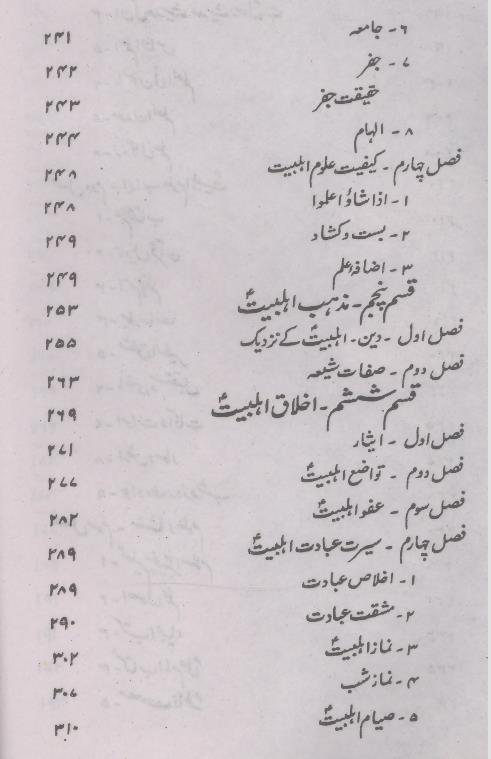 ۶ - جامعہ ۲۴۱
۷ - جفر ۲۴۲
حقیقت جفر ۲۴۳
۸ - الہام ۲۴۴
فصل چہارم - کیفیت علوم اہلبیت ۲۴۸
۱ - اذا شاؤا علموا ۲۴۸
۲ - بست و کشاد ۲۴۹
۳ - اضافۂ علم ۲۴۹
قسم پنجم - مذہب اہلبیتؑ ۲۵۳
فصل اول - دین - اہلبیتؑ کے نزدیک ۲۵۵
فصل دوم - صفات شیعہ ۲۶۳
قسم ششم - اخلاق اہلبیتؑ ۲۶۹
فصل اول - ایثار ۲۷۱
فصل دوم - تواضع اہلبیتؑ ۲۷۷
فصل سوم - عفو اہلبیتؑ ۲۸۲
فصل چہارم - سیرت عبادت اہلبیتؑ ۲۸۹
۱ - اخلاص عبادت ۲۸۹
۲ - مشقت عبادت ۲۹۰
۳ - نماز اہلبیتؑ ۳۰۲
۴ - نماز شب ۳۰۷
۵ - صیام اہلبیتؑ ۳۱۰